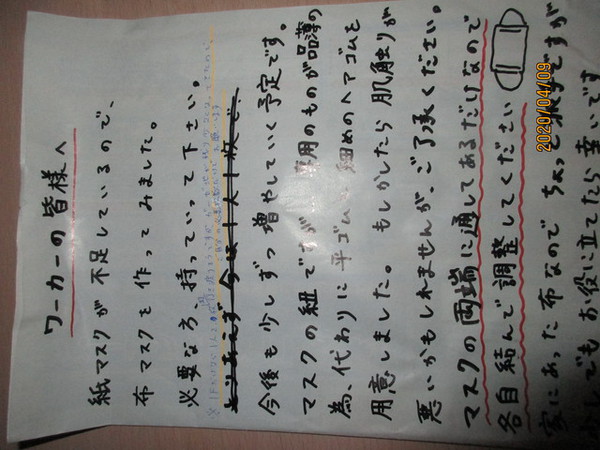 ワーカーの皆様へ
紙マスクが不足しているので、
布マスクを作ってみました。
必要な方、持っていって下さい。
とりあえず今は1人1枚で、
今後も少しずつ増やしていく予定です。
マスクの紐ですが 専用のものが品薄の
為、代わりに平ゴム 細めのヘアゴムを
用意しました。 もしかしたら肌触りが
悪いかもしれませんが、ご了承ください。
マスクの両端に通してあるだけなので
各自結んで調整してください
2020/04/09
家にあった布なので ちょっと ですが
でもお役に立てたら幸いです